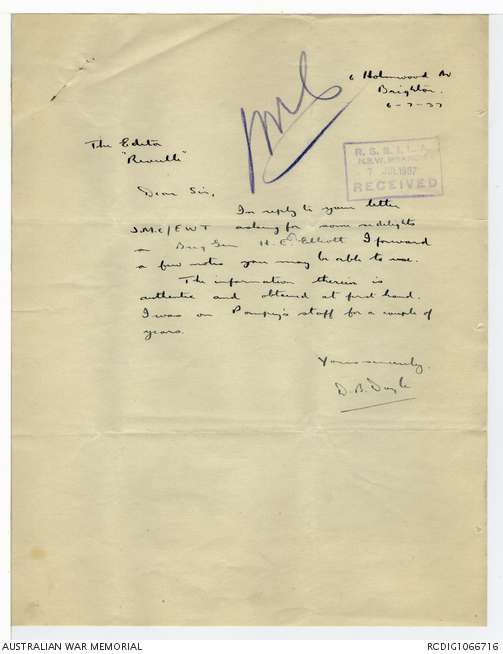 6 Holmwood Av
Brighton.
6-7-37
The Editor
"Reveille"
R.S.S.I.L.A.
N.S.W. BRANCH
7 JUL 1937
RECEIVED
Dear Sir,
In reply to your letter
J.M.C/EWT asking for some sidelights
on Brig Gen H.E. Elliott I forward
a few notes you may be able to use.
The information therein is
authentic and obtained at first hand.
I was on Pompey's staff for a couple of
years.
Yours sincerely.
D. B. Doyle
AUSTRALIAN WAR MEMORIAL
RCDIG1066716